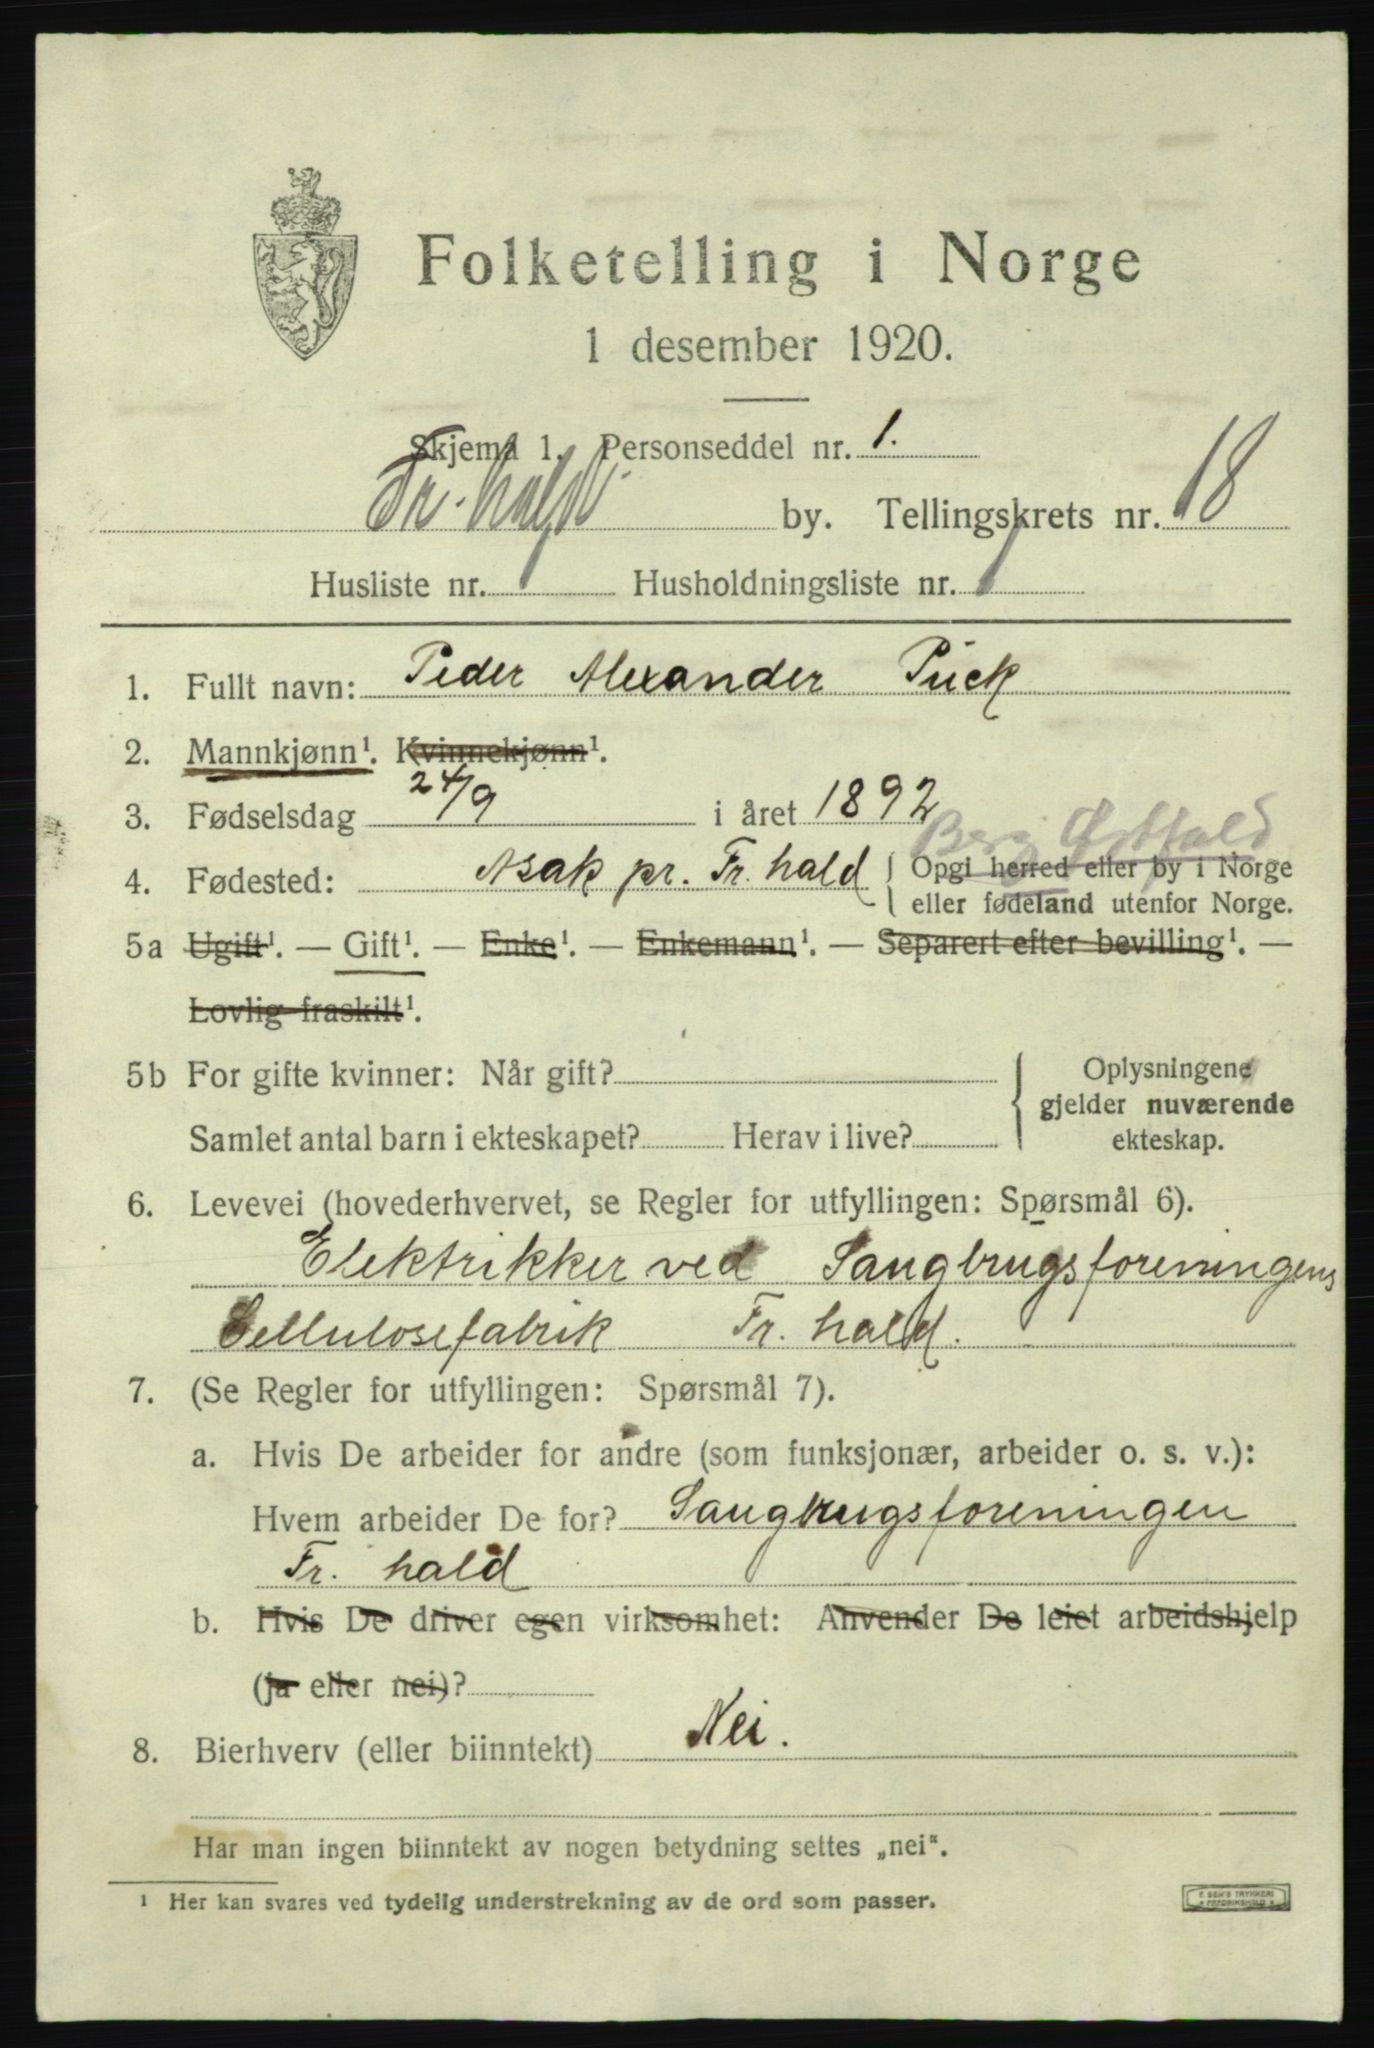 Folketelling i Norge
1 desember 1920.
Skjema 1. Personseddel nr. 1.
Fr.hald by. Tellingskrets nr. 18
Husliste nr. 1 Husholdningsliste nr. 1
1. Fullt navn: Peder Alexander Püek
2. Mannkjønn¹. Kvinnekjønn¹.
3. Fødselsdag 24/9 i året 1892
Berg Østfold
4. Fødested: Asak pr. Fr. hald { Opgi herred eller by i Norge
eller fødeland utenfor Norge.
5a Ugift¹. — Gift¹. — Enke¹. — Enkemann¹. — Separert efter bevilling¹. —
Lovlig fraskilt¹.
5b For gifte kvinner: Når gift? { Oplysningene
gjelder nuværende
Samlet antal barn i ekteskapet? Herav i live? ekteskap.
6. Levevei (hovederhvervet, se Regler for utfyllingen: Spørsmål 6).
Elektrikker ved Saugbrugsforeningens
Cellulosefabrik Fr. hald.
7. (Se Regler for utfyllingen: Spørsmål 7).
a. Hvis De arbeider for andre (som funksjonær, arbeider o. s. v.):
Hvem arbeider De for? Saugbrugsforeningen
Fr. hald
b. Hvis De driver egen virksomhet: Anvender De leiet arbeidshjelp
(ja eller nei)?
8. Bierhverv (eller biinntekt) Nei.
Har man ingen biinntekt av nogen betydning settes „nei".
¹ Her kan svares ved tydelig understrekning av de ord som passer.
E. SEM'S TRYKKERI
FREDRIKSHALD